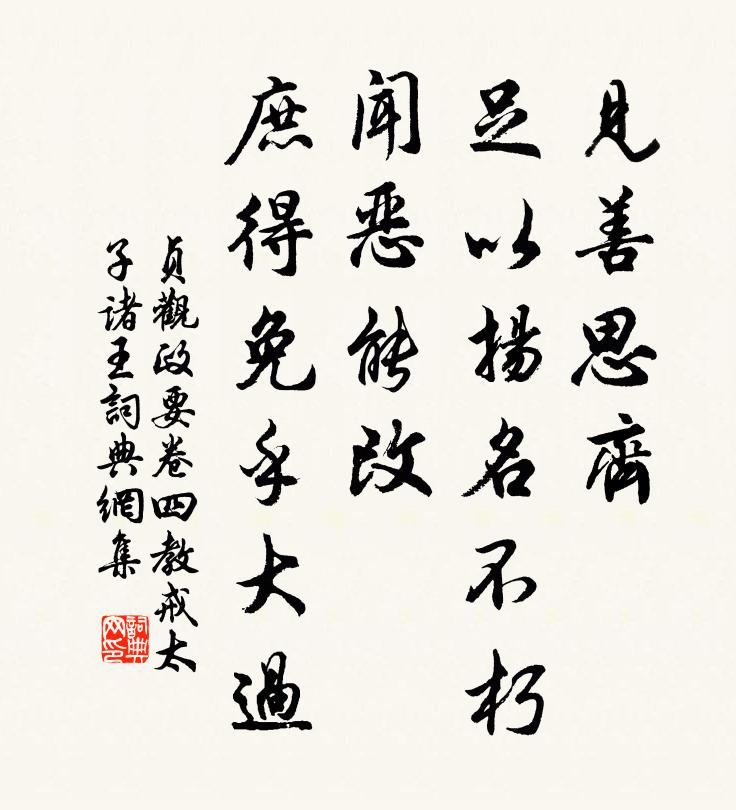 見善思齊
足以揚名不朽
聞惡能改
庶得免乎大過
貞觀政要卷四教戒太
子諸王詞典網集
詞典
网印